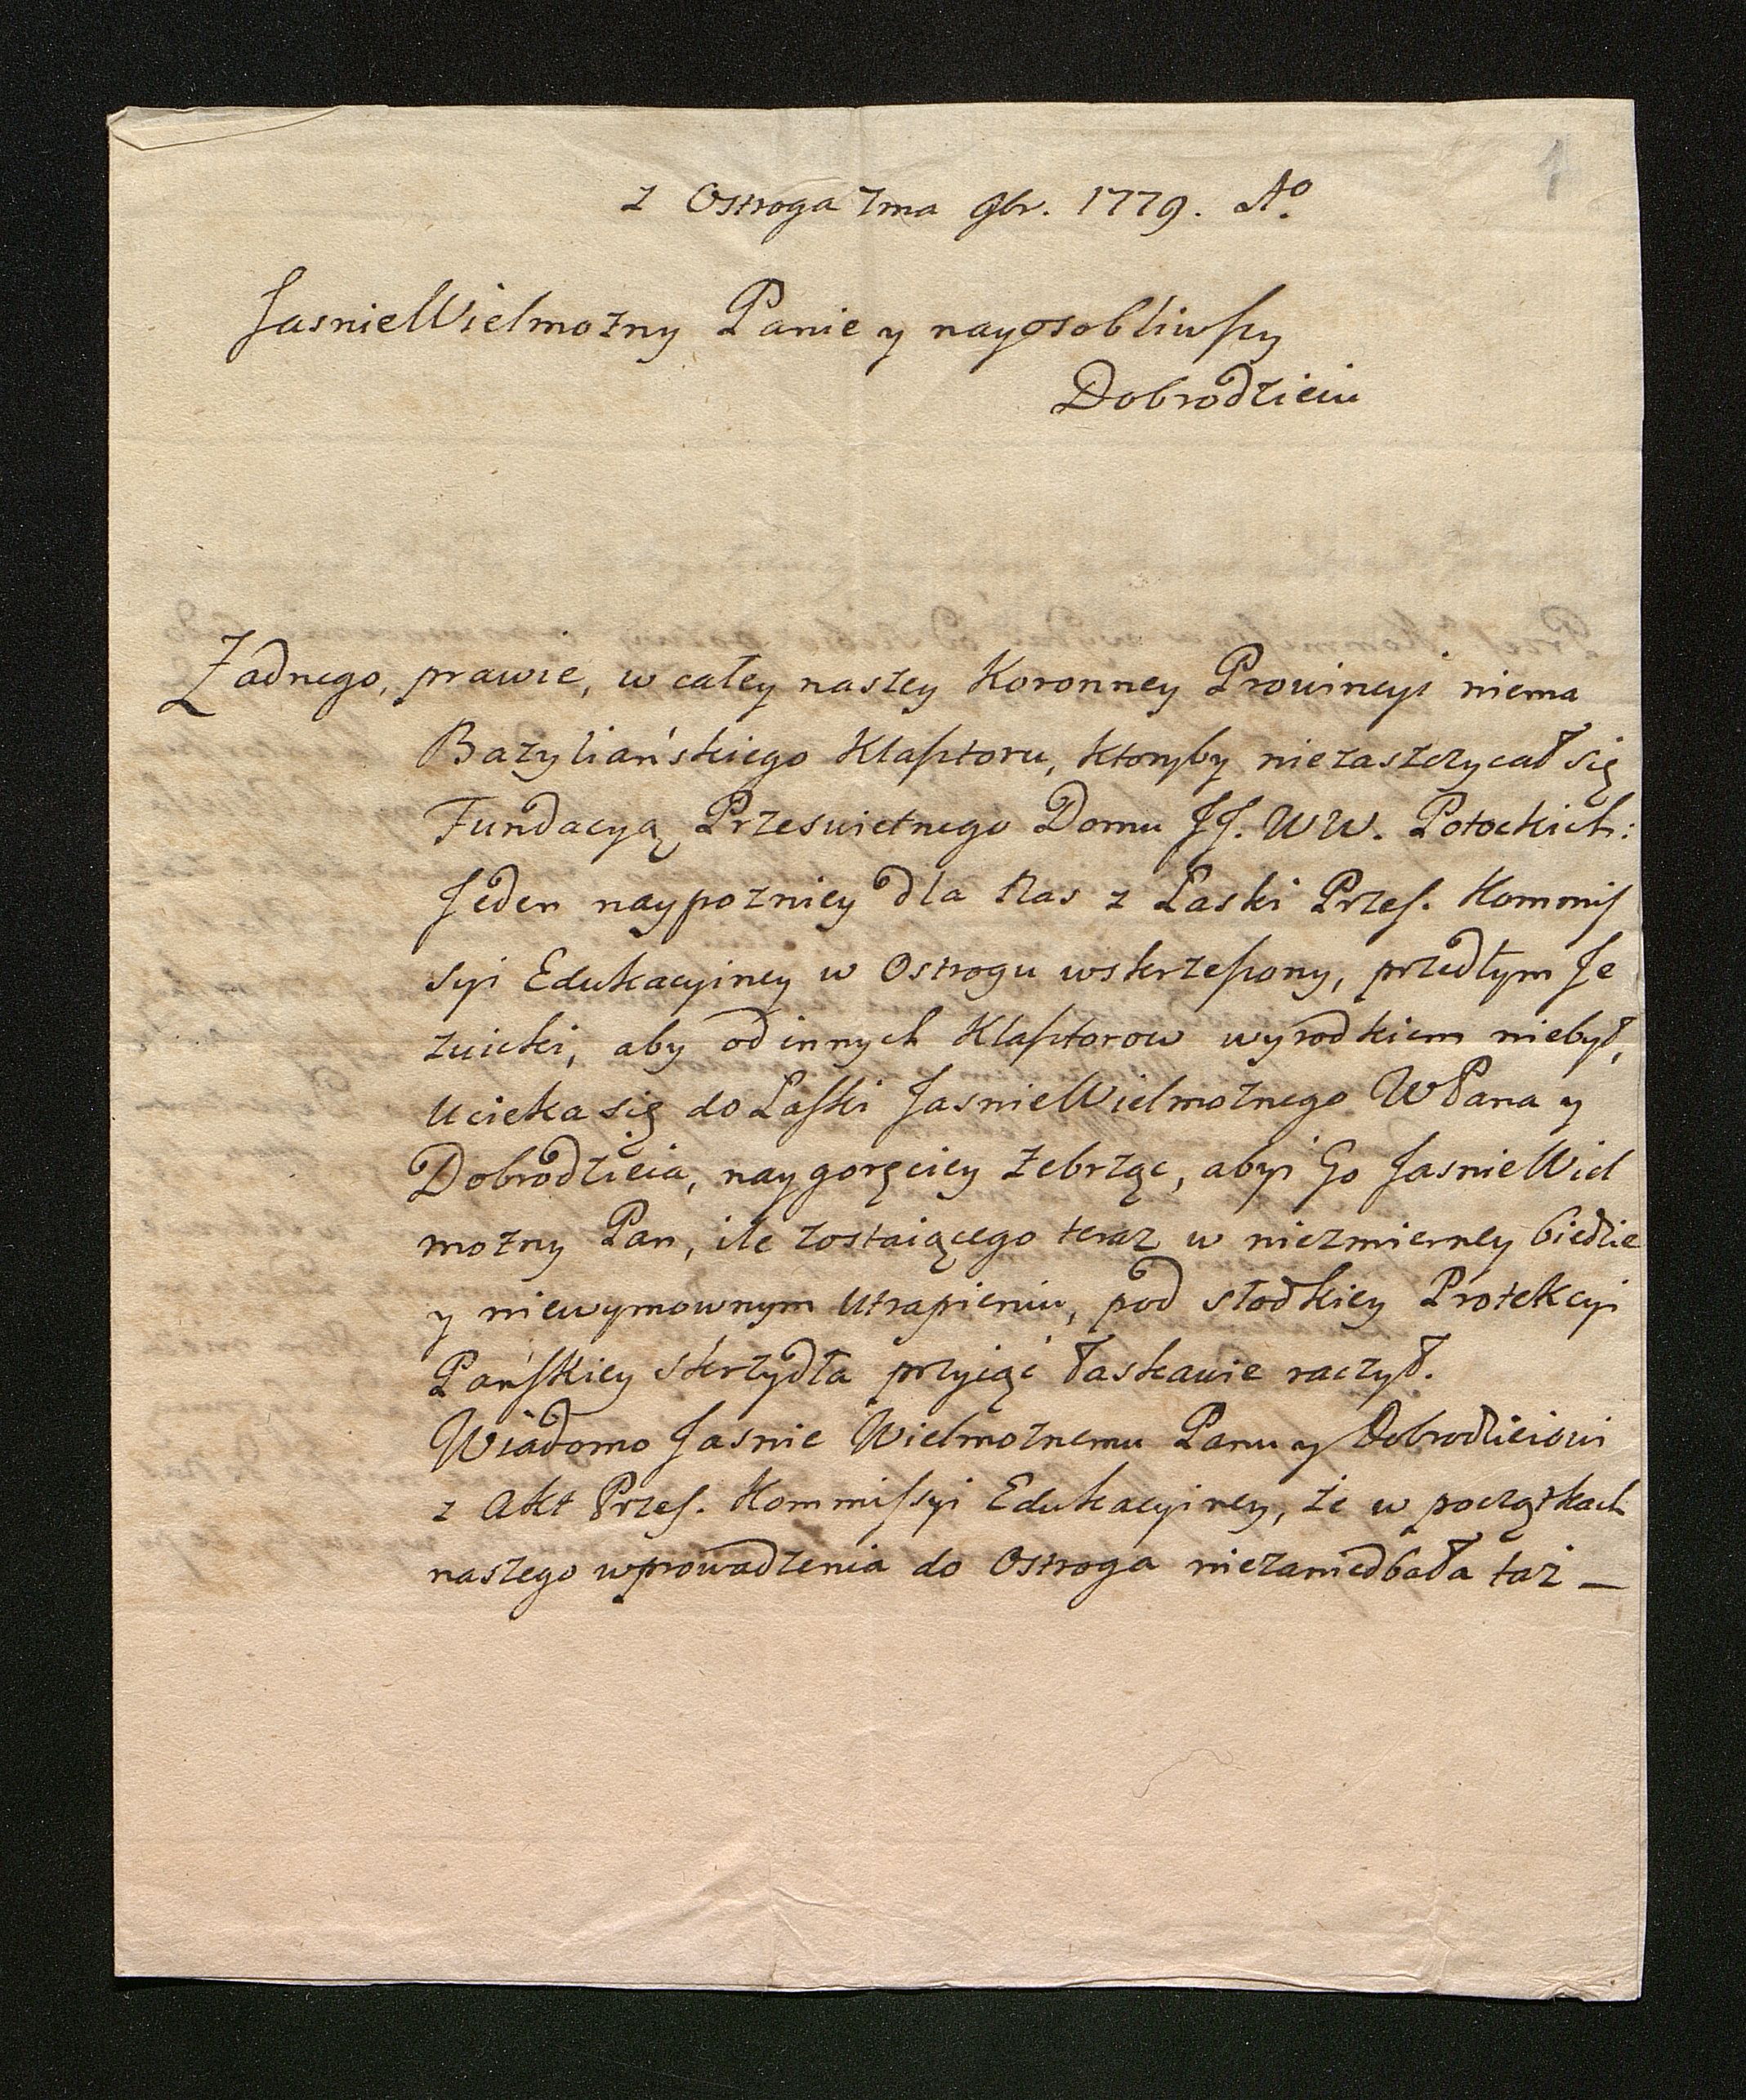 1
z Ostroga 7ma 9br. 1779. Aº
JasnieWielmożny Panie y nayosobliwszy
Dobrodzieiu
Żadnego, prawie, w całey naszey Koronney Prowincyi niema
Bazyliańskiego Klasztoru, ktoryby niezaszczycał się
Fundacyą Przeswietnego Domu JJ. WW. Potockich:
Jeden naypozniey dla Nas z Łaski Przes. Kommis
syi Edukacyiney w Ostrogu wskrzeszony, przedtym Je
zuicki, aby od innych Klasztorow wyrodkiem niebył,
Ucieka się do Łaski JasnieWielmożnego WPana y
Dobrodzieia, naygoręciey żebrząc, abyi Go JasnieWiel
możny Pan, ile zostaiącego teraz w niezmierney biedzie
y niewymownym Utrapieniu, pod słodkiey Protekcyi
Pańskiey skrzydła przyiąć łaskawie raczył.
Wiadomo Jasnie Wielmożnemu Panu y Dobrodzieiowi
z Akt Przes. Kommissyi Edukacyiney, że w początkach
naszego wprowadzenia do Ostroga niezaniedbała taż —